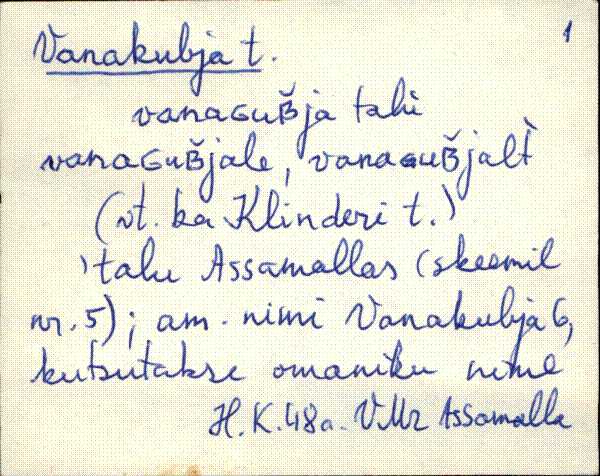 Vanakubja t. 1
vanaɢuʙ̌ja tahi
vanaɢuʙ̌jale, vanaɢuʙ̌jalt̀
(vt. ka Klinderi t.)
'talu Assamallas (skeemil
nr. 5); am. nimi Vanakubja 6,
kutsutakse omaniku nime
H.K.48a. VMr Assamalla